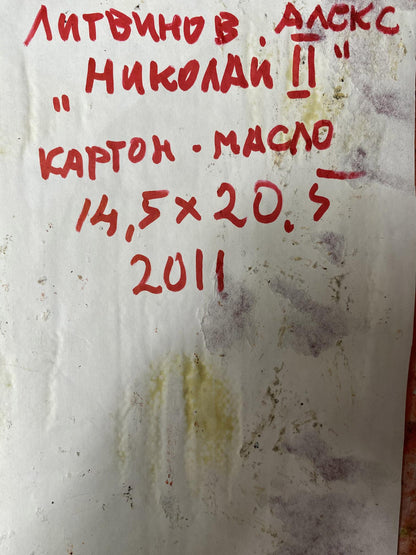 ЛИТВИНОВ. АЛЕКС
"НИКОЛАЙ II"
КАРТОН. МАСЛО
14,5 × 20,5
2011